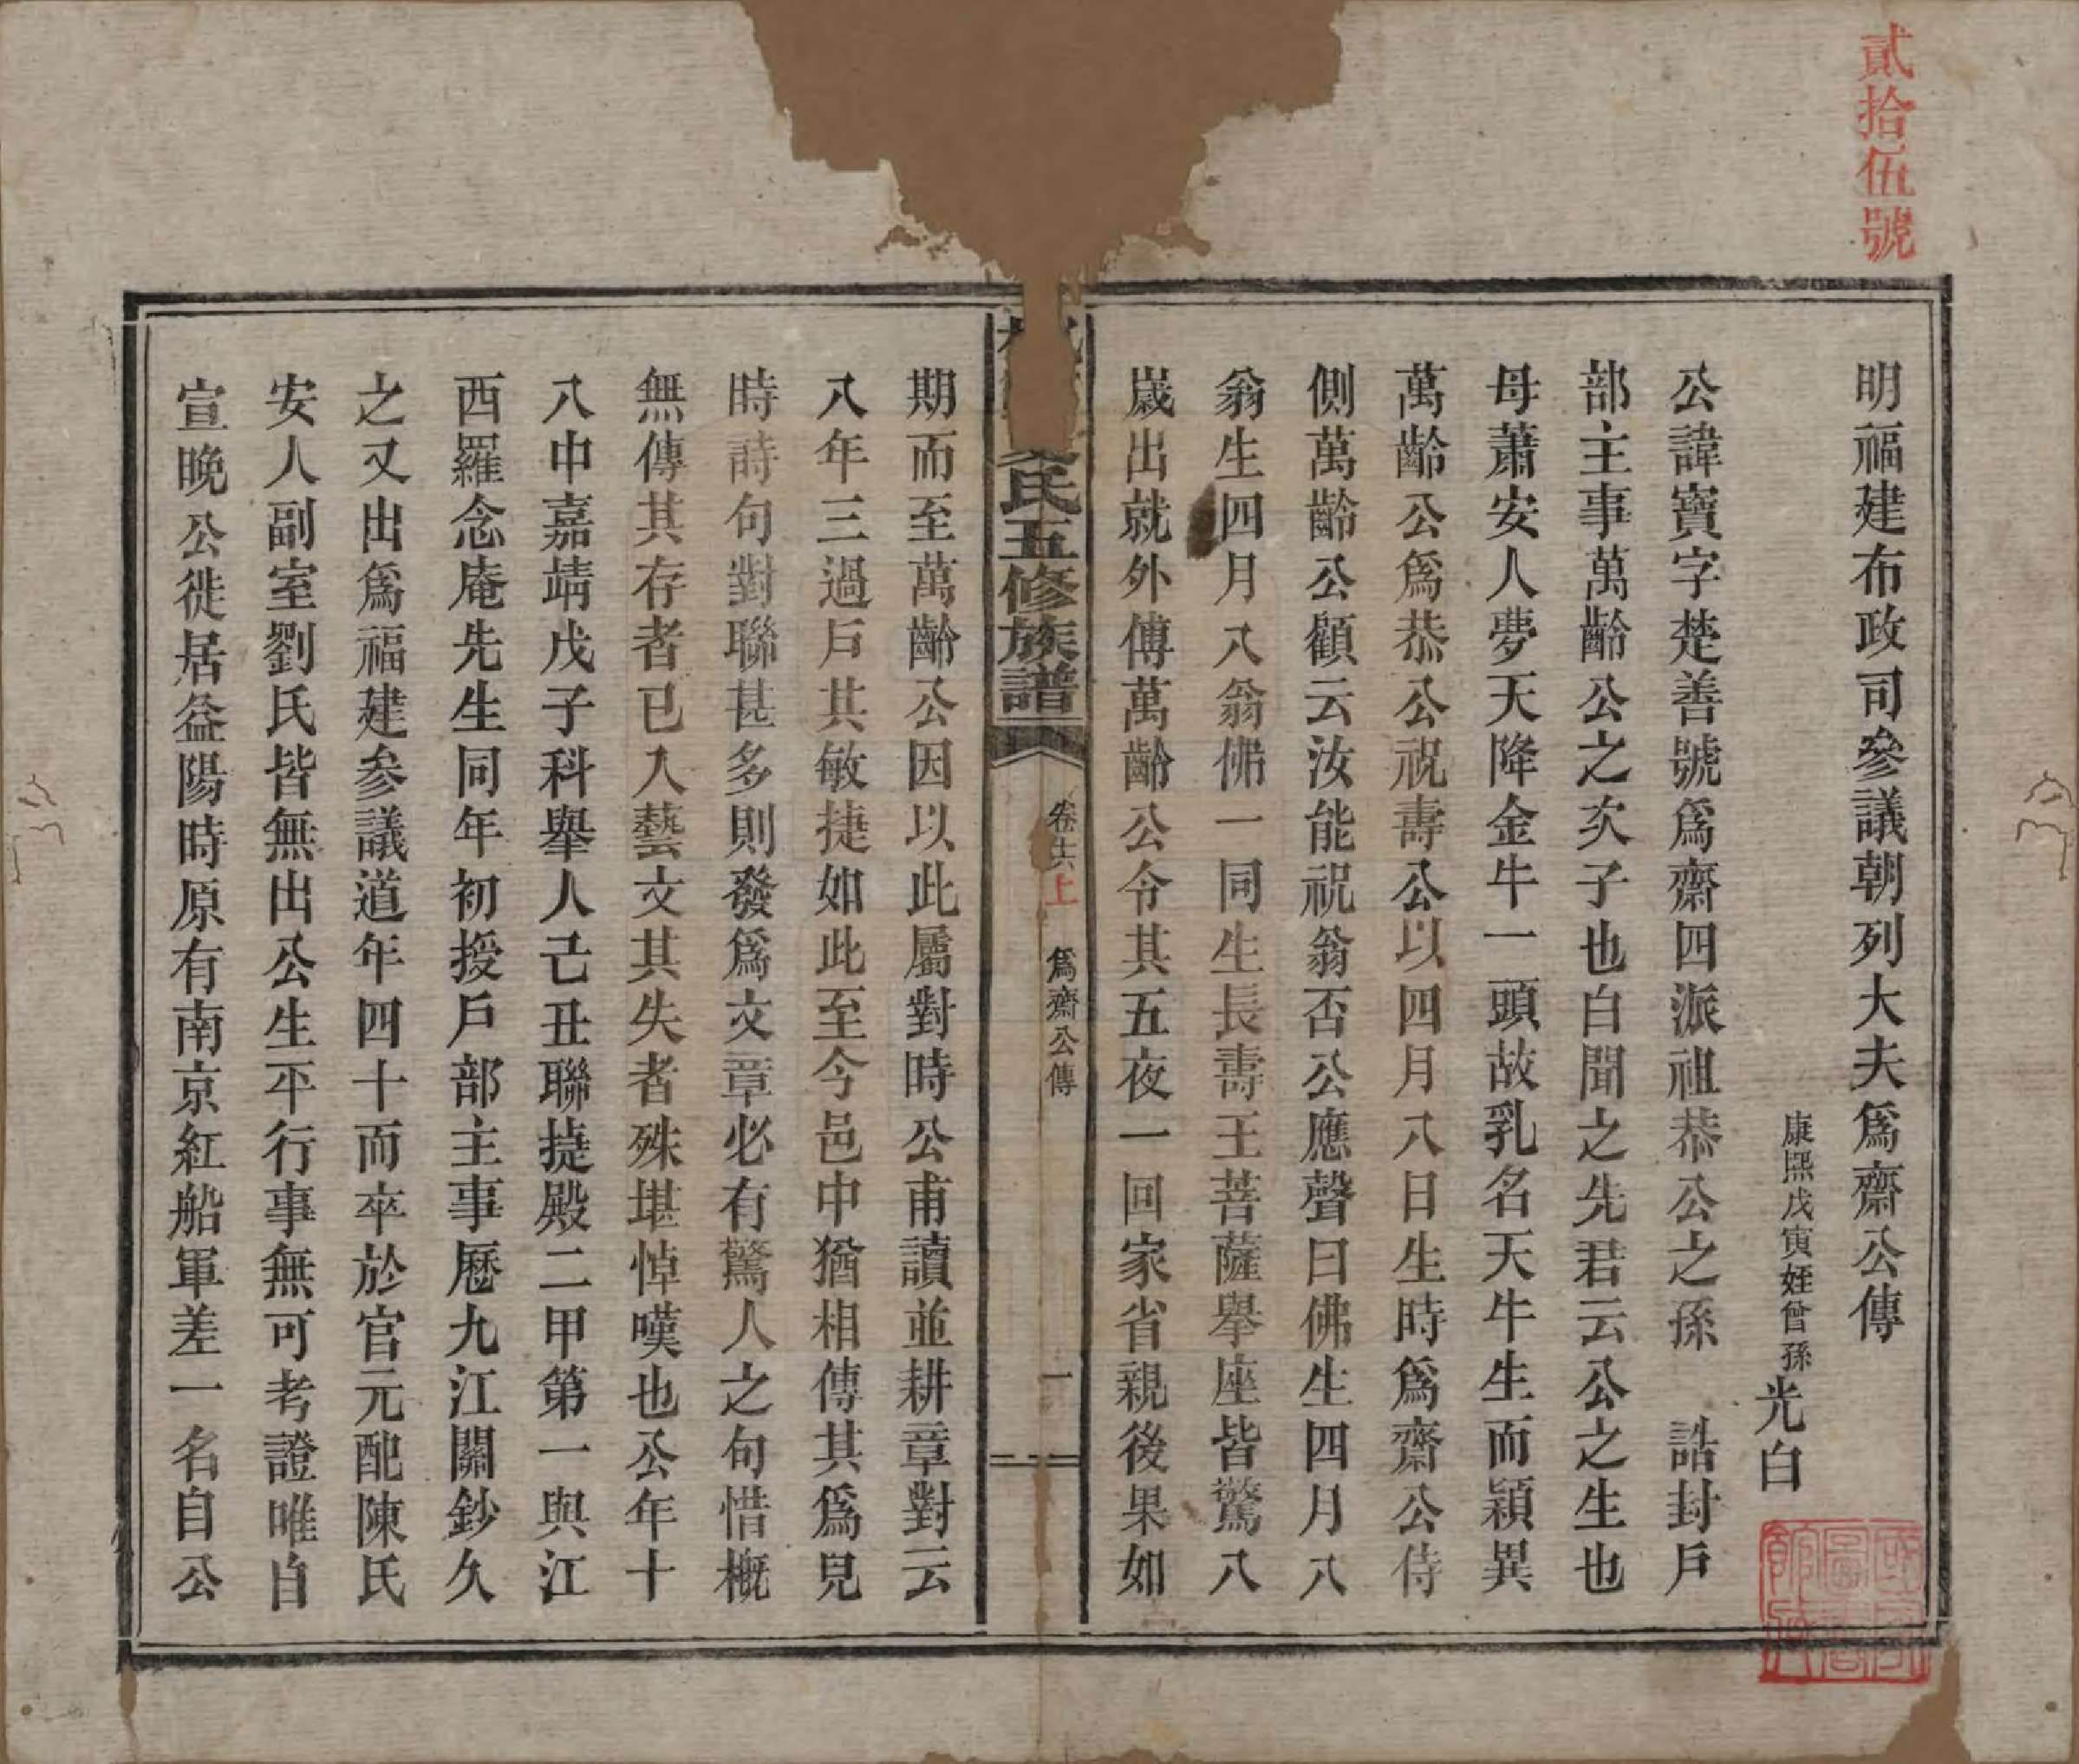 貳拾伍號
明福建布政司參議朝列大夫爲齋公傳
康熙戊寅姪曾孫光白
公諱寶字楚善號爲齋四派祖恭公之孫　誥封戶
部主事萬齡公之次子也白聞之先君云公之生也
母蕭安人夢天降金牛一頭故乳名天牛生而穎異
萬齡公爲恭公祝壽公以四月八日生時爲齋公侍
側萬齡公顧云汝能祝翁否公應聲曰佛生四月八
翁生四月八翁佛一同生長壽王菩薩舉座皆驚八
歲出就外傅萬齡公令其五夜一回家省親後果如
氏五修族譜
卷廿六上　爲齋公傳
一
期而至萬齡公因以此屬對時公甫讀並耕章對云
八年三過戶其敏捷如此至今邑中猶相傳其爲兒
時詩句對聯甚多則發爲文章必有驚人之句惜概
無傳其存者已入藝文其失者殊堪悼嘆也公年十
八中嘉靖戊子科舉人己丑聯㨗殿二甲第一與江
西羅念庵先生同年初授戶部主事歷九江關鈔久
之又出爲福建參議道年四十而卒於官元配陳氏
安人副室劉氏皆無出公生平行事無可考證唯自
宣晚公徙居益陽時原有南京紅船軍差一名自公